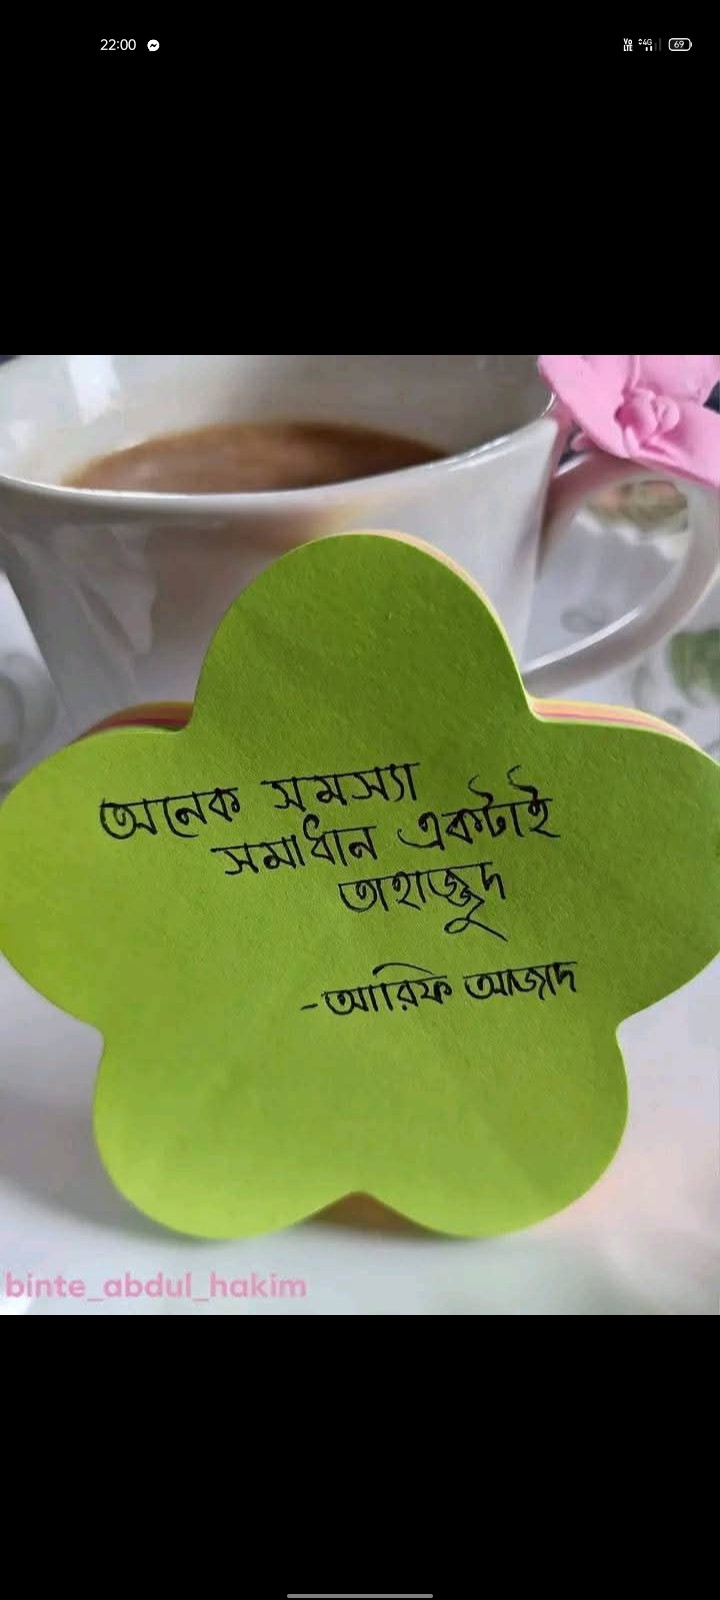 22:00
Vo LTE 4G 69
অনেক সমস্যা
সমাধান একটাই
তাহাজ্জুদ
-আরিফ আজাদ
binte_abdul_hakim